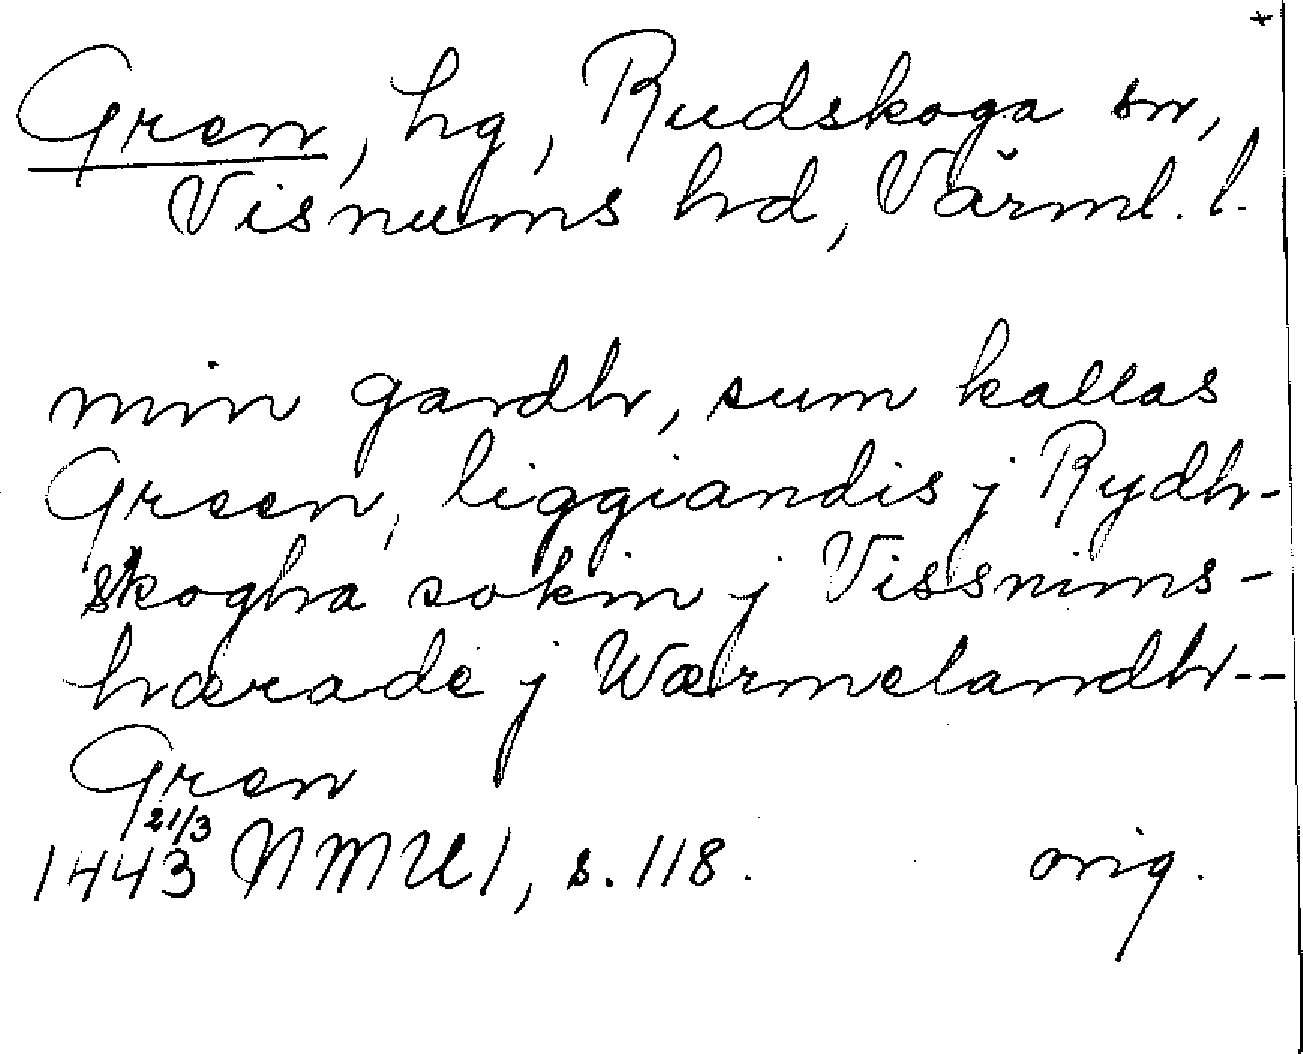 +
Gren, hg, Rudskoga sn,
Visnums hd, Värml. l.
min gardh, sum kallas
Green, liggiandis j Rydh-
skogha sokin j Vissnims-
hærade j Wærmelandh--
Gren
21/3
1443 NMU1, s. 118. orig.